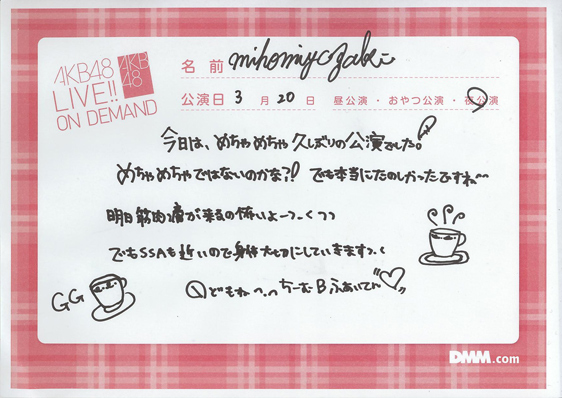 AKB48
LIVE!!
ON DEMAND
AKB
48
名 前 mihomiyazaki
公演日 3 月 20 日 昼公演・おやつ公演・夜公演
今日は、めちゃめちゃ久しぶりの公演でした。
めちゃめちゃではないのかな?! でも本当にたのしかったですね〜
明日筋肉痛が来るの怖いよーっ
でもSSAも近いので身体大切にしていきますっ
GG どもねへ ちーむBふぁいてん
DMM.com